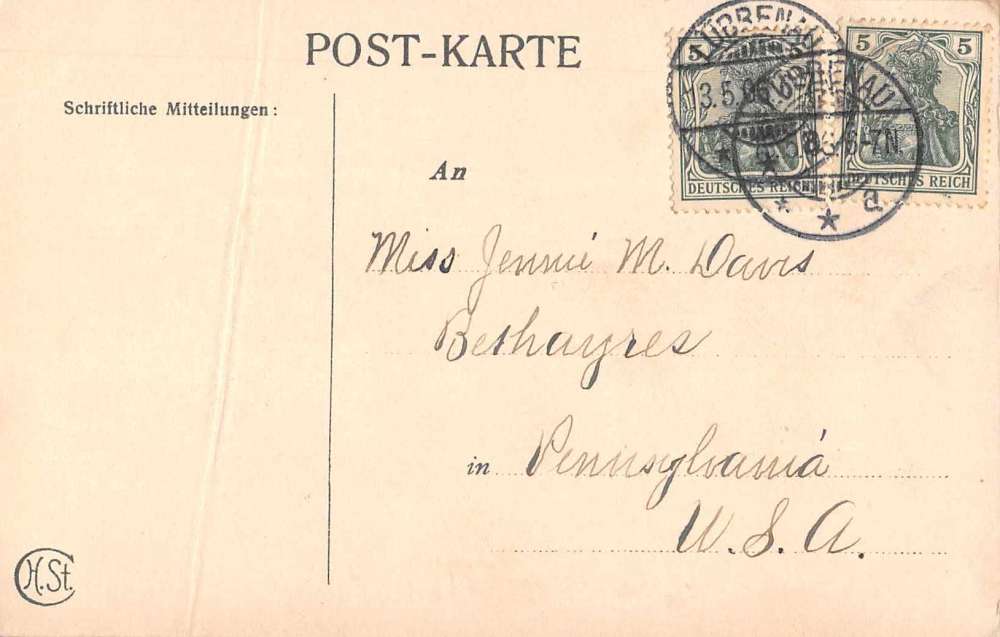 POST-KARTE
Schriftliche Mitteilungen:
An
Miss Jennie M. Davis
Bethayres
in Pennsylvania
U. S. A.
5 5
DEUTSCHES REICH
5 5
DEUTSCHES REICH
LÜBBENAU
6-7N.
a
H. St.